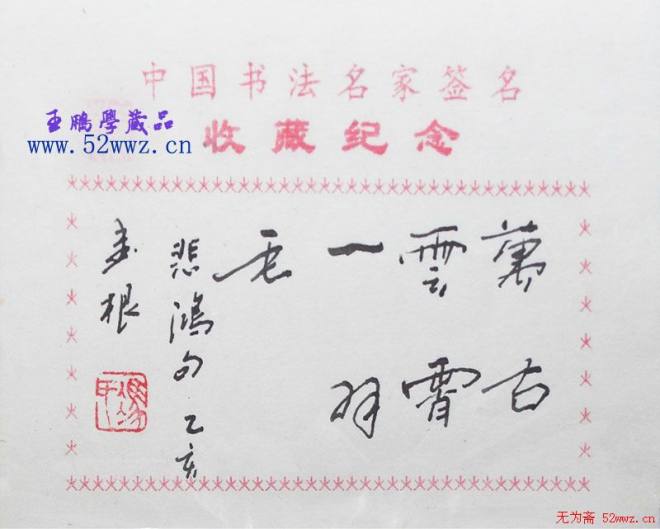 中国书法名家签名
收藏纪念
王鹏學藏品
www.52wwz.cn
萬古
雲霄
一羽
毛
悲鴻句 乙亥
无为斋 52wwz.cn